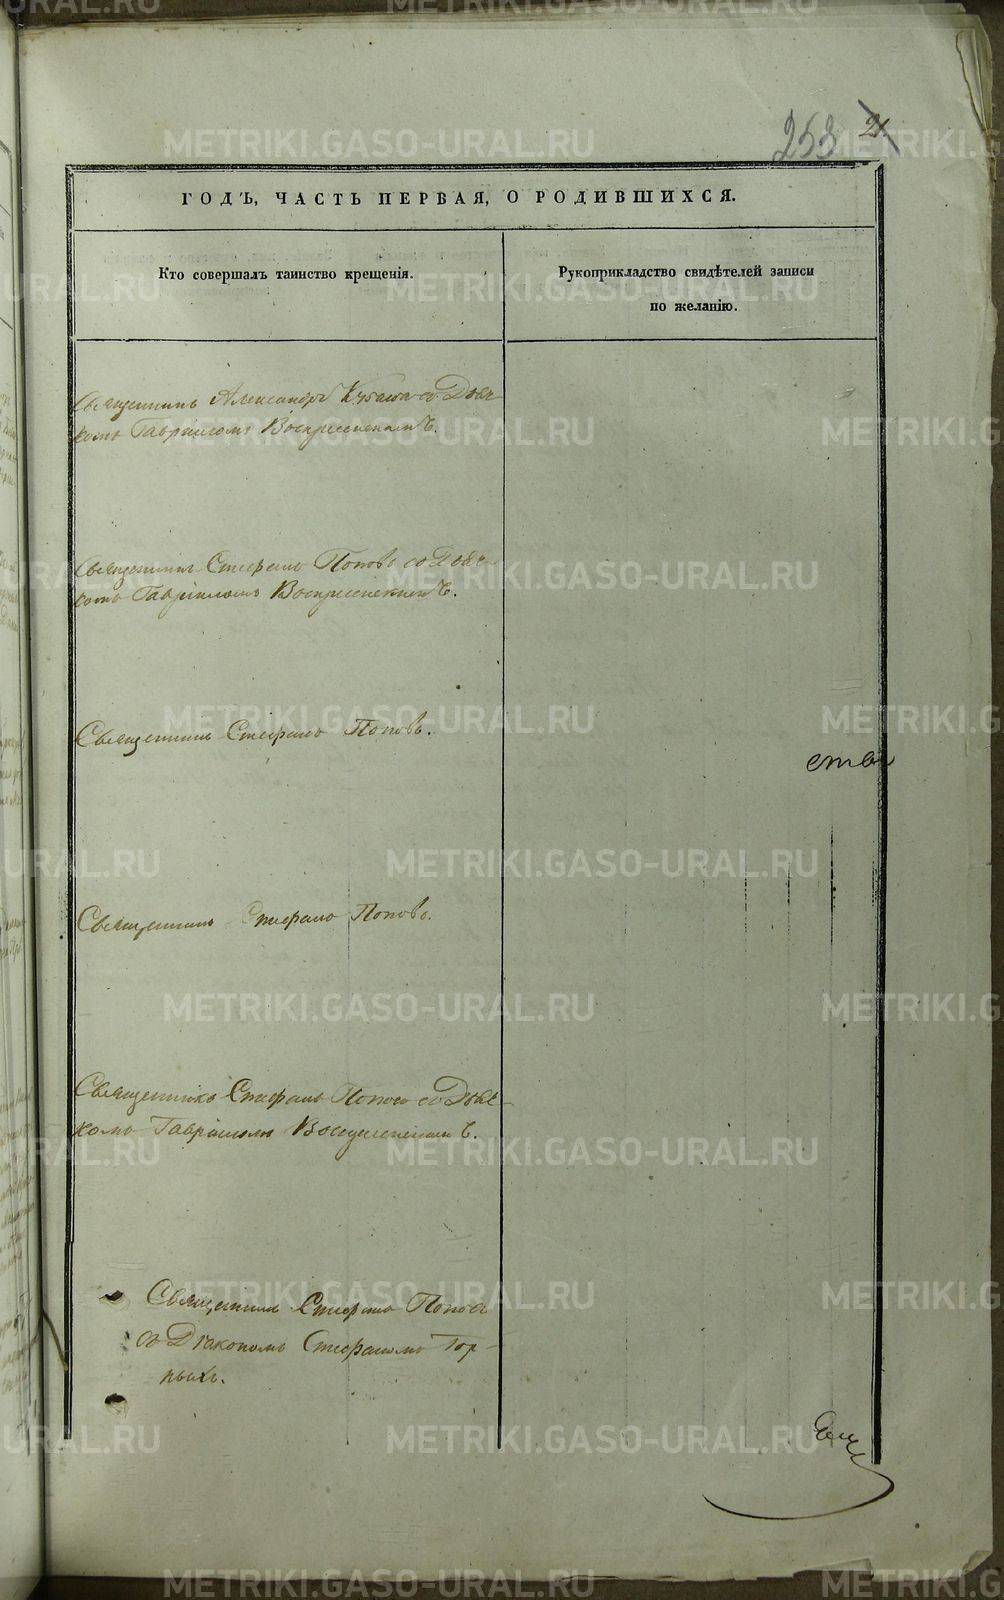 253 21
ГОДЪ, ЧАСТЬ ПЕРВАЯ, О РОДИВШИХСЯ.
Кто совершалъ таинство крещенія.
Рукоприкладство свидѣтелей записи
по желанію.
Священникъ Александръ со Дьяч-
комъ Гавріиломъ Воскресенскимъ.
Священникъ Стефанъ Поповъ со Дьяч-
комъ Гавріиломъ Воскресенскимъ.
Священникъ Стефанъ Поповъ.
Священникъ Стефанъ Поповъ.
Священникъ Стефанъ Поповъ со Дьяч-
комъ Гавріиломъ Воскресенскимъ.
Священникъ Стефанъ Поповъ
съ Діакономъ Стефаномъ Гор-
ныхъ.
METRIKI.GASO-URAL.RU